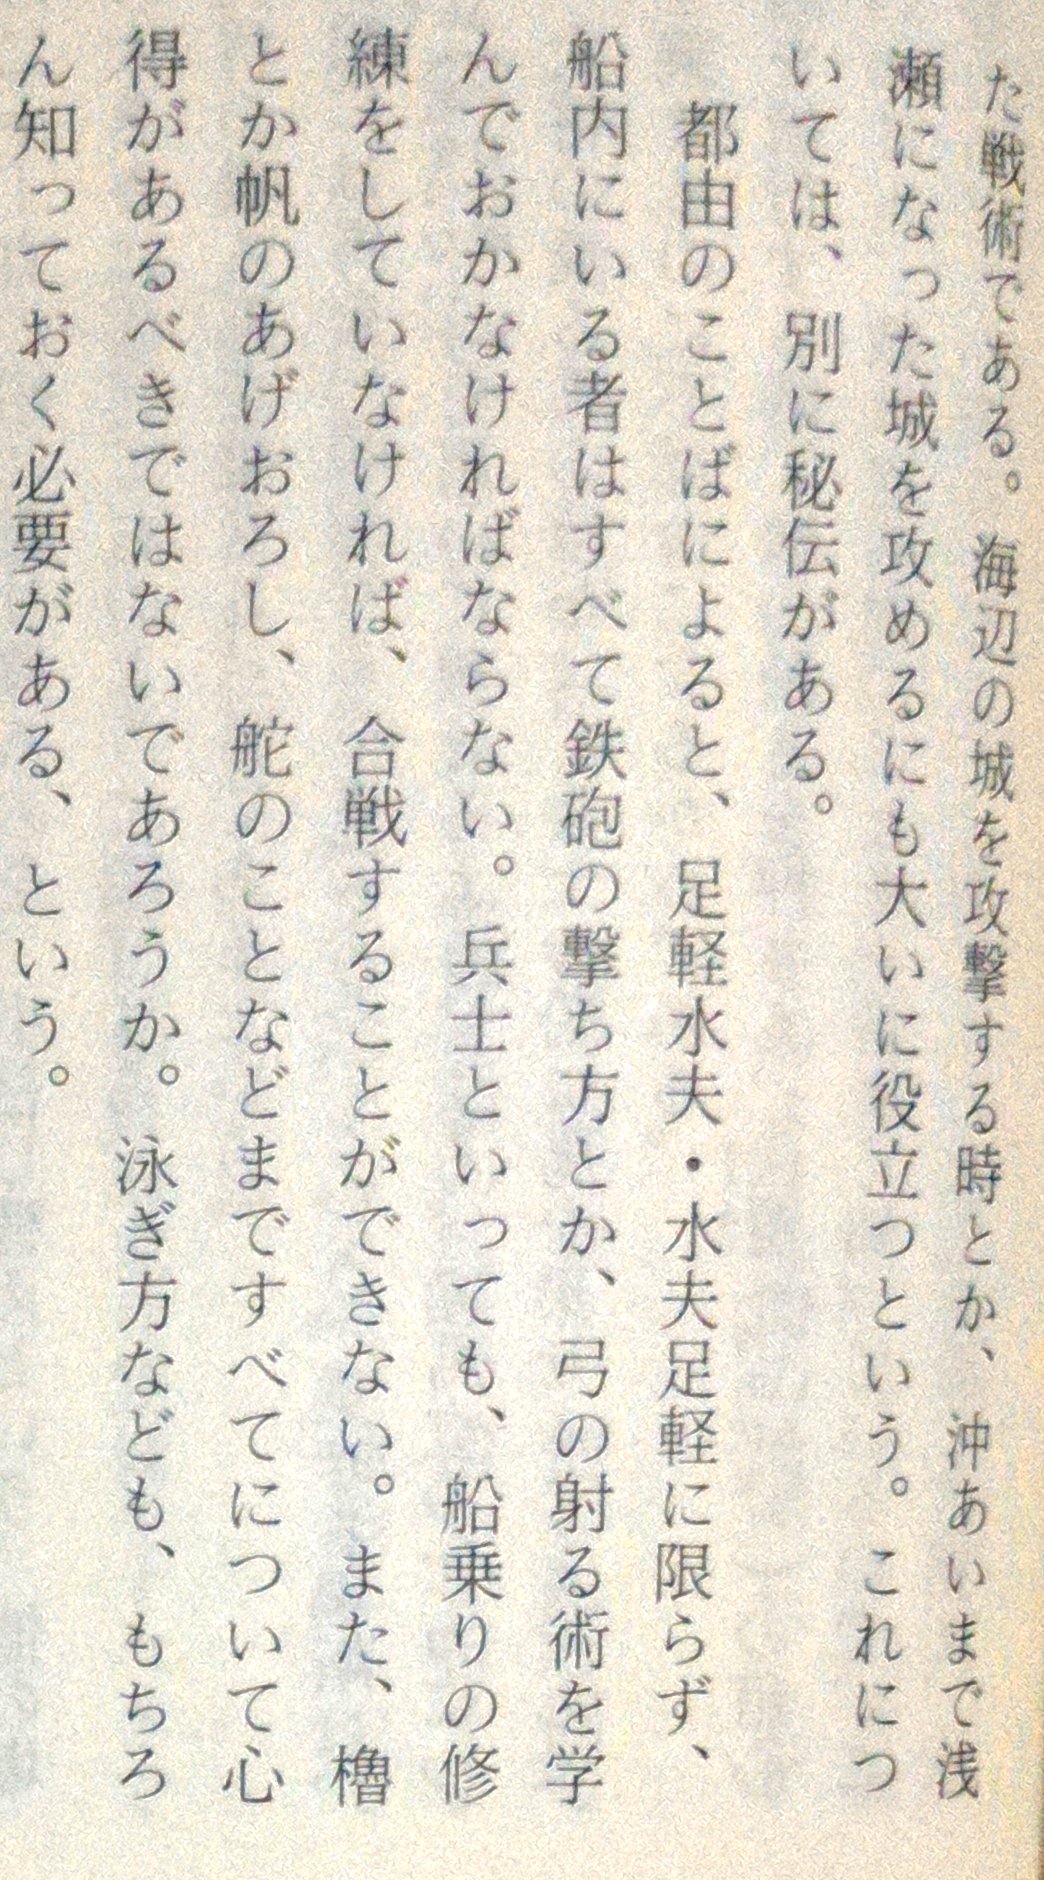 た戦術である。海辺の城を攻撃する時とか、沖あいまで浅
瀬になった城を攻めるにも大いに役立つという。これにつ
いては、別に秘伝がある。
都由のことばによると、足軽水夫・水夫足軽に限らず、
船内にいる者はすべて鉄砲の撃ち方とか、弓の射る術を学
んでおかなければならない。兵士といっても、船乗りの修
練をしていなければ、合戦することができない。また、櫓
とか帆のあげおろし、舵のことなどまですべてについて心
得があるべきではないであろうか。泳ぎ方なども、もちろ
ん知っておく必要がある、という。